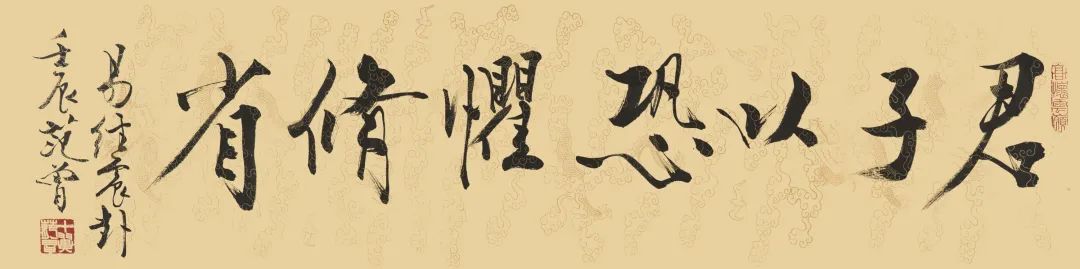 君子以恐懼脩省
易经震卦
壬辰范曾